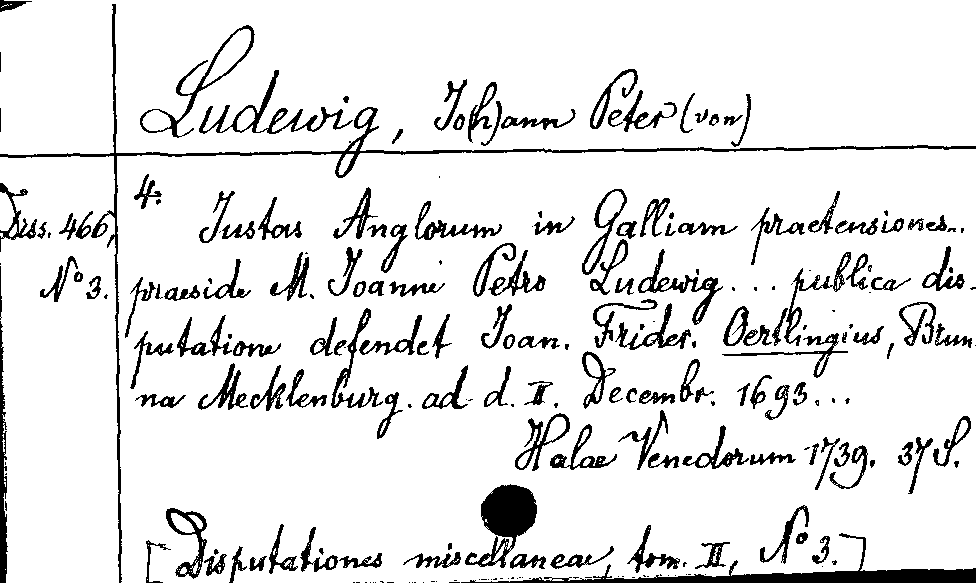 Ludewig, Jo(h)ann Peter (von)
4.
Diss. 466,
Nº 3.
Iustas Anglorum in Galliam praetensiones...
praeside M. Joanne Petro Ludewig... publica dis-
putatione defendet Ioan. Frider. Oertlingius, Brun-
na Mecklenburg. ad d. II. Decembr. 1693...
Halae Venedorum 1739. 37 S.
[Disputationes miscellaneae, tom. II, Nº 3.]